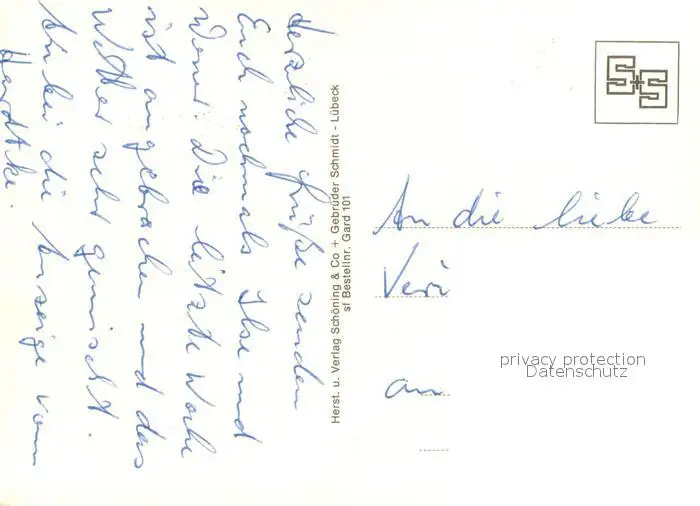 Herzliche Grüße senden
Euch nochmals Ilse und
Werner. Die letzte Woche
ist angebrochen und das
Wetter sehr gemischt.
Anbei die Anzeige vom
Hardtke.
Herst. u. Verlag Schöning & Co + Gebrüder Schmidt - Lübeck
sf Bestellnr. Gard 101
S+S
An die liebe
Veri
an
privacy protection
Datenschutz